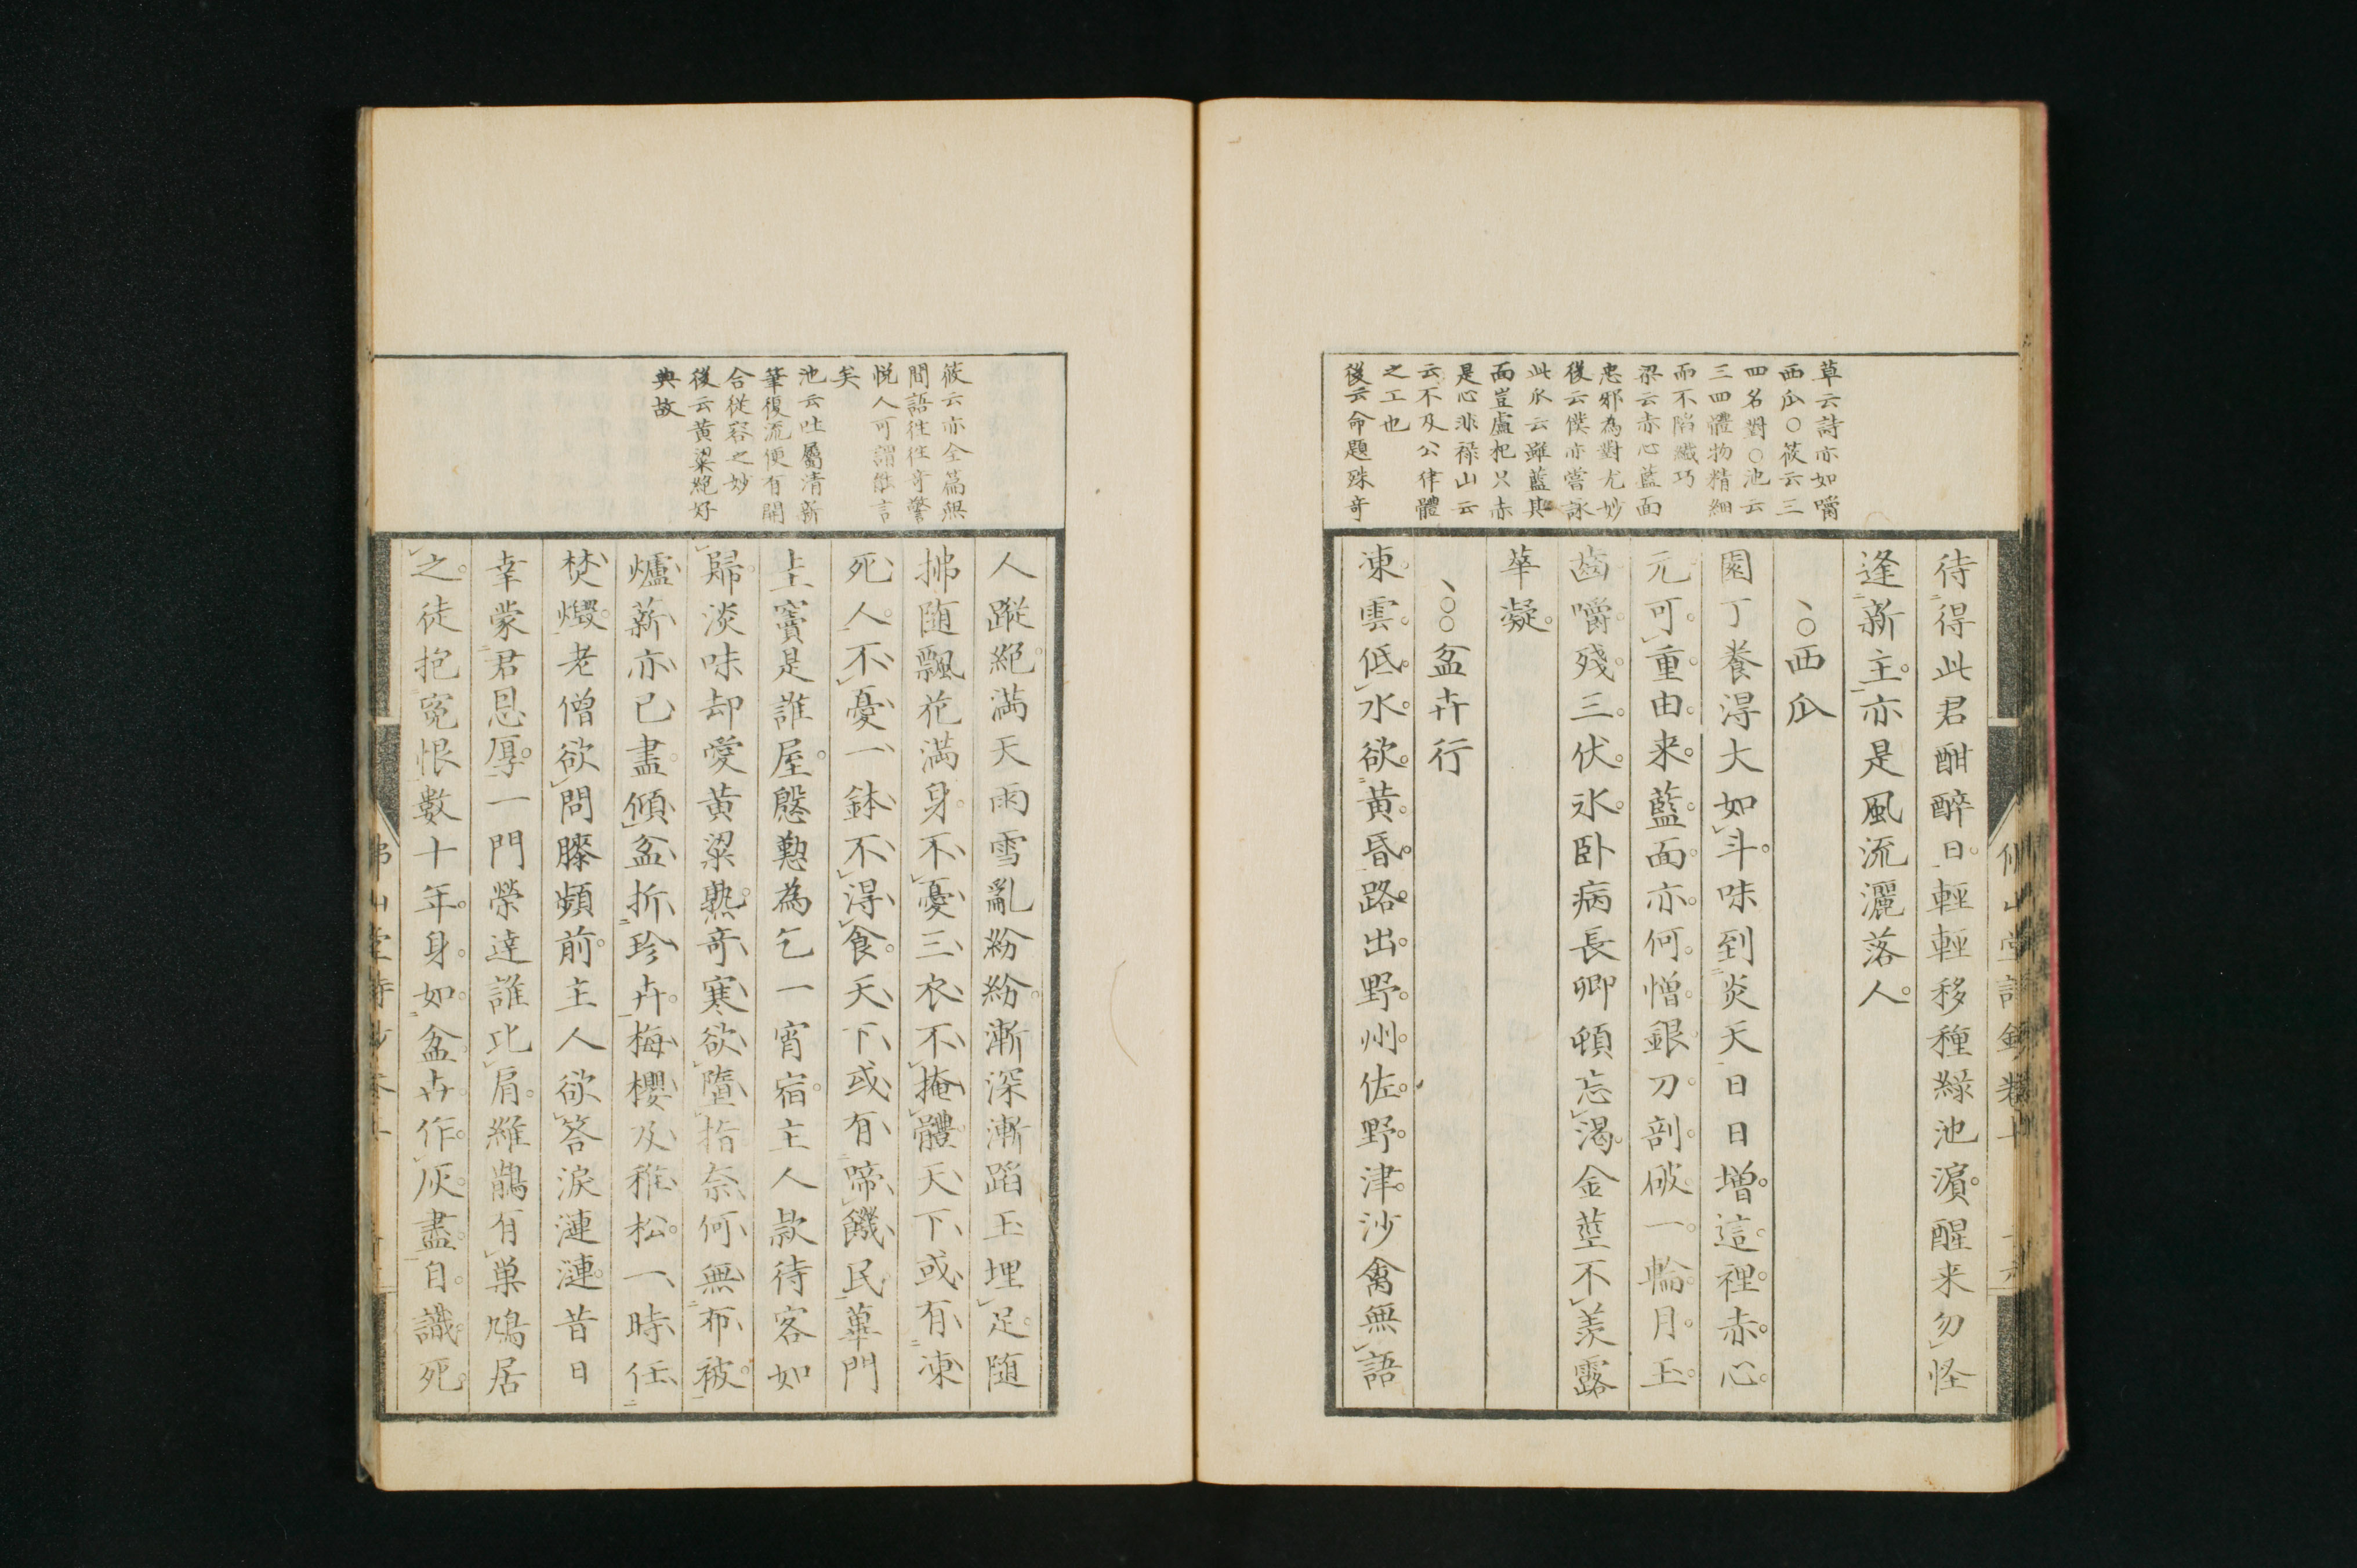 草云詩亦如嚼
西瓜〇筱云三
四名對〇池云
三四體物精細
而不陷纖巧
梁云赤心藍面
忠邪為對尤妙
後云僕亦嘗詠
此瓜云雖藍其
面豈盧杞只赤
是心非祿山云
云不及公律體
之工也
後云命題殊奇
待得此君酣醉日輕輕移種綠池濵醒来勿怪
逢新主亦是風流灑落人
、〇西瓜
園丁養得大如斗味到炎天日日增這裡赤心
元可重由来藍面亦何憎銀刀剖破一輪月玉
齒嚼殘三伏氷卧病長卿頓忘渴金莖不羨露
華凝
、〇〇盆卉行
凍雲低水欲黄昏路出野州佐野津沙禽無語
筱云亦全篇無
間語往往奇警
悦人可謂能言
矣
池云吐屬清新
筆復流便有開
合從容之妙
後云黄粱絕好
典故
人蹤絕滿天雨雪亂紛紛漸深漸蹈玉埋足随
拂随飄花滿身不憂三衣不掩體天下或有凍
死人不憂一鉢不得食天下或有啼饑民蓽門
圭竇是誰屋慇懃為乞一宵宿主人款待客如
歸淡味却愛黄粱熟奇寒欲墮指奈何無布被
爐薪亦已盡傾盆折珍卉梅櫻及稚松一時任
焚燬老僧欲問膝頻前主人欲答淚漣漣昔日
幸蒙君恩厚一門榮達誰比肩維鵲有巢鳩居
之徒抱冤恨數十年身如盆卉作灰盡自識死